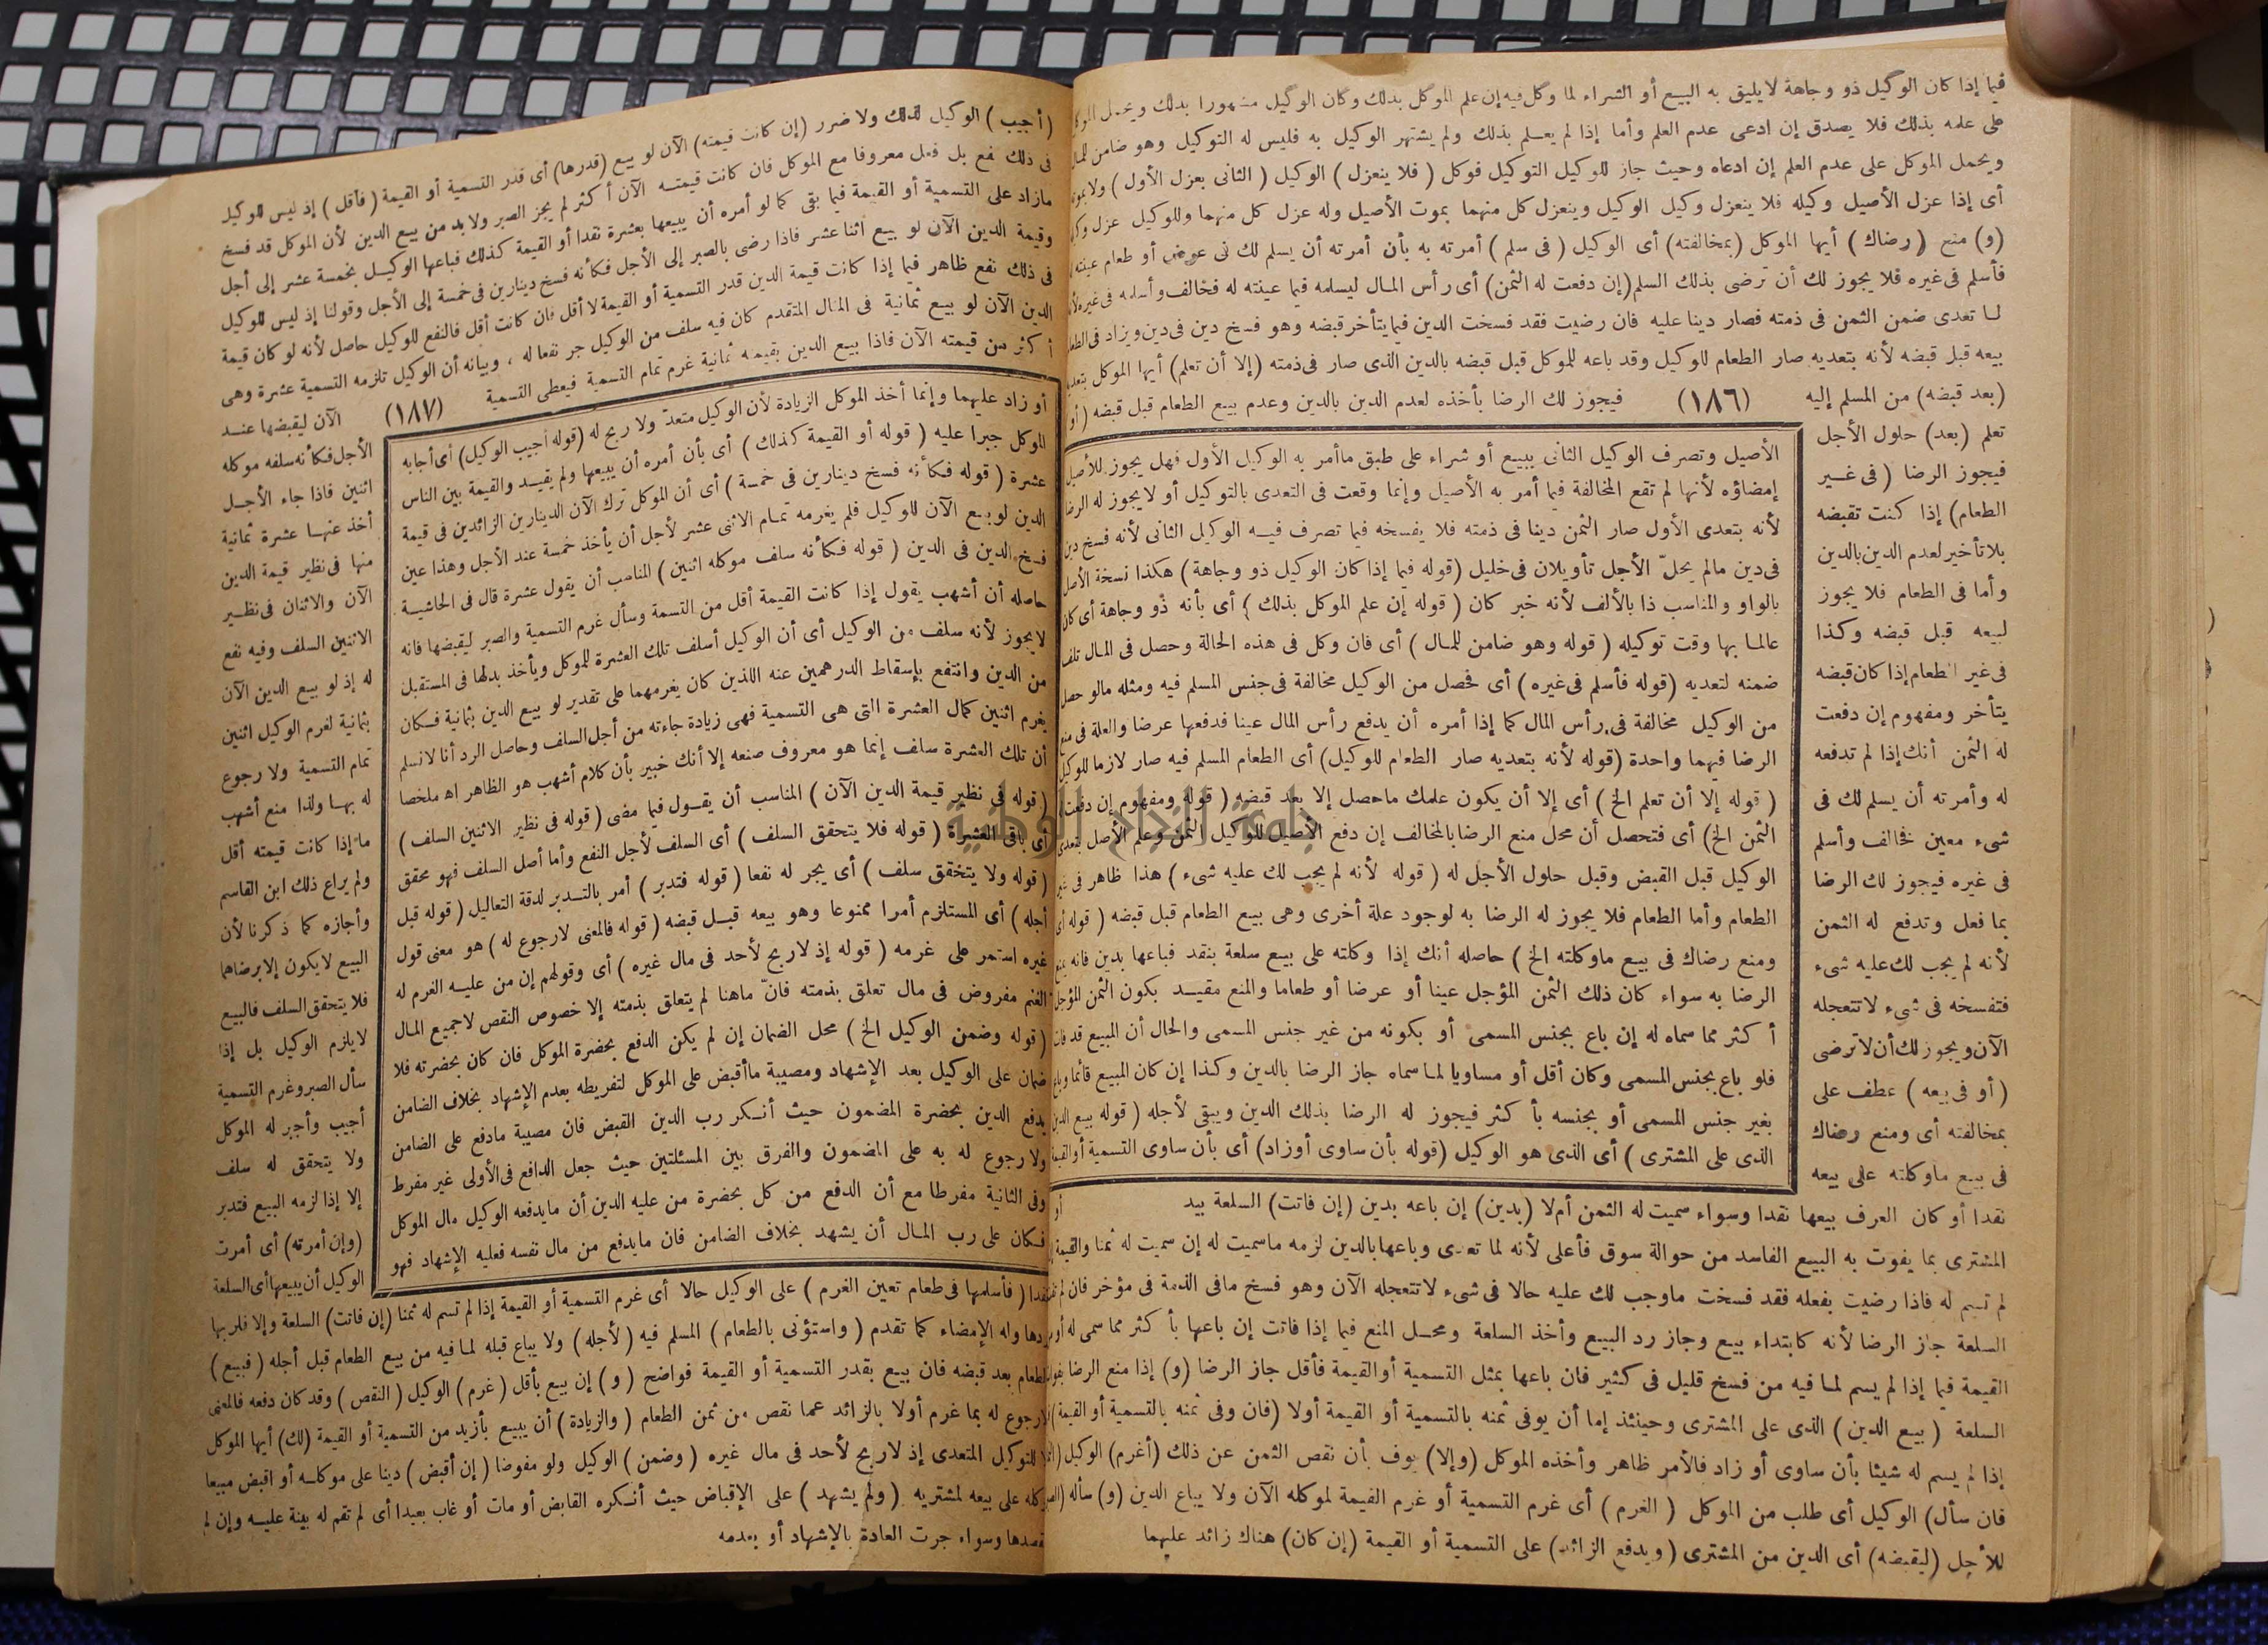 فيما إذا كان الوكيل ذو وجاهة لا يليق به البيع أو الشراء لما وكل فيه إن علم الموكل بذلك وكان الوكيل مشهورا بذلك ويحمل الموكل
على علمه بذلك فلا يصدق إن ادعى عدم العلم وأما إذا لم يعلم بذلك ولم يشتهر الوكيل به فليس له التوكيل وهو ضامن للمال
ويحمل الموكل على عدم العلم إن ادعاه وحيث جاز للوكيل التوكيل فوكل (فلا ينعزل) الوكيل (الثانى بعزل الأول) ولا بموته
أى إذا عزل الأصيل وكيله فلا ينعزل وكيل الوكيل وينعزل كل منهما بموت الأصيل وله عزل كل منهما وللوكيل عزل
(و) منع (رضاك) أيها الموكل (بمخالفته) أى الوكيل (فى سلم) أمرته به بأن أمرته أن يسلم لك فى عرض أو طعام عينته
فأسلم فى غيره فلا يجوز لك أن ترضى بذلك السلم (إن دفعت له الثمن) أى رأس المال ليسلمه فيما عينته له فخالف وأسلمه فى غيره
لما تعدى ضمن الثمن فى ذمته فصار دينا عليه فان رضيت فقد فسخت الدين فيما يتأخر قبضه وهو فسخ دين فى دين ويزاد فى الطعام
بيعه قبل قبضه لأنه بتعديه صار الطعام للوكيل وقد باعه للموكل قبل قبضه بالدين الذى صار فى ذمته (إلا أن تعلم) أيها الموكل بتعديه
(بعد قبضه) من المسلم إليه (١٨٦) فيجوز لك الرضا بأخذه لعدم الدين بالدين وعدم بيع الطعام قبل قبضه (أو
تعلم (بعد) حلول الأجل
فيجوز الرضا (فى غير
الطعام) إذا كنت تقبضه
بلا تأخير لعدم الدين بالدين
وأما فى الطعام فلا يجوز
لبيعه قبل قبضه وكذا
فى غير الطعام إذا كان قبضه
يتأخر ومفهوم إن دفعت
له الثمن أنك إذا لم تدفعه
له وأمرته أن يسلم لك فى
شىء معين فخالف وأسلم
فى غيره فيجوز لك الرضا
بما فعل وتدفع له الثمن
لأنه لم يجب لك عليه شىء
فتفسخه فى شىء لا تتعجله
الآن ويجوز لك أن لا ترضى
(أو فى بيعه) عطف على
بمخالفته أى ومنع رضاك
فى بيع ما وكلته على بيعه
الأصيل وتصرف الوكيل الثانى ببيع أو شراء على طبق ما أمر به الوكيل الأول فهل يجوز للأصيل
إمضاؤه لأنها لم تقع المخالفة فيما أمر به الأصيل وإنما وقعت فى التعدى بالتوكيل أو لا يجوز له الرضا
لأنه بتعدى الأول صار الثمن دينا فى ذمته فلا يفسخه فيما تصرف فيه الوكيل الثانى لأنه فسخ دين
فى دين مالم يحلّ الأجل تأويلان فى خليل (قوله فيما إذا كان الوكيل ذو وجاهة) هكذا نسخة الأصل
بالواو والمناسب ذا بالألف لأنه خبر كان (قوله إن علم الموكل بذلك) أى بأنه ذو وجاهة أى كان
عالما بها وقت توكيله (قوله وهو ضامن للمال) أى فان وكل فى هذه الحالة وحصل فى المال تلف
ضمنه لتعديه (قوله فأسلم فى غيره) أى فحصل من الوكيل مخالفة فى جنس المسلم فيه ومثله مالو حصل
من الوكيل مخالفة فى رأس المال كما إذا أمره أن يدفع رأس المال عينا فدفعها عرضا والعلة فى منع
الرضا فيهما واحدة (قوله لأنه بتعديه صار الطعام للوكيل) أى الطعام المسلم فيه صار لازما للوكيل
(قوله إلا أن تعلم الخ) أى إلا أن يكون علمك ماحصل إلا بعد قبضه (قوله ومفهوم إن دفعت
الثمن الخ) أى فتحصل أن محل منع الرضا بالمخالف إن دفع الأصيل للوكيل الثمن وعلم الأصل بتعدى
الوكيل قبل القبض وقبل حلول الأجل له (قوله لأنه لم يجب لك عليه شىء) هذا ظاهر فى غير
الطعام وأما الطعام فلا يجوز له الرضا به لوجود علة أخرى وهى بيع الطعام قبل قبضه (قوله أى
ومنع رضاك فى بيع ما وكلته الخ) حاصله أنك إذا وكلته على بيع سلعة بنقد فباعها بدين فانه يمنع
الرضا به سواء كان ذلك الثمن المؤجل عينا أو عرضا أو طعاما والمنع مقيد بكون الثمن المؤجل
أكثر مما سماه له إن باع بجنس المسمى أو بكونه من غير جنس المسمى والحال أن المبيع قد فات
فلو باع بجنس المسمى وكان أقل أو مساويا لما سماه جاز الرضا بالدين وكذا إن كان المبيع قائما وباع
بغير جنس المسمى أو بجنسه بأكثر فيجوز له الرضا بذلك الدين ويبقى لأجله (قوله بيع الدين
الذى على المشترى) أى الذى هو الوكيل (قوله بأن ساوى أو زاد) أى بأن ساوى التسمية أو القيمة
أو
نقدا أو كان العرف بيعها نقدا وسواء سميت له الثمن أم لا (بدين) إن باعه بدين (إن فاتت) السلعة بيد
المشترى بما يفوت به البيع الفاسد من حوالة سوق فأعلى لأنه لما تعدى وباعها بالدين لزمه ما سميت له إن سميت له ثمنا والقيمة
لم تسم له فاذا رضيت بفعله فقد فسخت ماوجب لك عليه حالا فى شىء لا تتعجله الآن وهو فسخ مافى الذمة فى مؤخر فان لم تفت
السلعة جاز الرضا لأنه كابتداء بيع وجاز رد البيع وأخذ السلعة ومحل المنع فيما إذا فاتت إن باعها بأكثر مما سمى له أو
القيمة فيما إذا لم يسم لما فيه من فسخ قليل فى كثير فان باعها بمثل التسمية أو القيمة فأقل جاز الرضا (و) إذا منع الرضا بفوات
السلعة (بيع الدين) الذى على المشترى وحينئذ إما أن يوفى ثمنه بالتسمية أو القيمة أولا (فان وفى ثمنه بالتسمية أو القيمة)
إذا لم يسم له شيئا بأن ساوى أو زاد فالأمر ظاهر وأخذه الموكل (وإلا) يوف بأن نقص الثمن عن ذلك (أغرم) الوكيل
فان سأل) الوكيل أى طلب من الموكل (الغرم) أى غرم التسمية أو غرم القيمة لموكله الآن ولا يباع الدين (و) سأله
للأجل (ليقبضه) أى الدين من المشترى (ويدفع الزائد) على التسمية أو القيمة (إن كان) هناك زائد عليهما
(أجيب) الوكيل لذلك ولا ضرر (إن كانت قيمته) الآن لو بيع (قدرها) أى قدر التسمية أو القيمة (فأقل) إذ ليس للوكيل
فى ذلك نفع بل فعل معروفا مع الموكل فان كانت قيمته الآن أكثر لم يجز الصبر ولا بد من بيع الدين لأن الموكل قد فسخ
مازاد على التسمية أو القيمة فيما بقى كما لو أمره أن يبيعها بعشرة نقدا أو القيمة كذلك فباعها الوكيل بخمسة عشر إلى أجل
وقيمة الدين الآن لو بيع اثنا عشر فاذا رضى بالصبر إلى الأجل فكأنه فسخ دينارين فى خمسة إلى الأجل وقولنا إذ ليس للوكيل
فى ذلك نفع ظاهر فيما إذا كانت قيمة الدين قدر التسمية أو القيمة لا أقل فان كانت أقل فالنفع للوكيل حاصل لأنه لو كان قيمة
الدين الآن لو بيع ثمانية فى المثال المتقدم كان فيه سلف من الوكيل جر نفعا له ، وبيانه أن الوكيل تلزمه التسمية عشرة وهى
أكثر من قيمته الآن فاذا بيع الدين بقيمته ثمانية غرم تمام التسمية فيعطى التسمية (١٨٧) الآن ليقبضها عند
الأجل فكأنه سلفه موكله
اثنين فاذا جاء الأجل
أخذ عنها عشرة ثمانية
منها فى نظير قيمة الدين
الآن والاثنان فى نظير
الاثنين السلف وفيه نفع
له إذ لو بيع الدين الآن
بثمانية لغرم الوكيل اثنين
تمام التسمية ولا رجوع
له بها ولذا منع أشهب
ما إذا كانت قيمته أقل
ولم يراع ذلك ابن القاسم
وأجازه كما ذكرنا لأن
البيع لا يكون إلا برضاهما
فلا يتحقق السلف فالبيع
لا يلزم الوكيل بل إذا
سأل الصبر وغرم التسمية
أجيب وأجبر له الموكل
ولا يتحقق له سلف
إلا إذا لزمه البيع فتدبر
(وإن أمرته) أى أمرت
الوكيل أن يبيعها أى السلعة
أو زاد عليهما وإنما أخذ الموكل الزيادة لأن الوكيل متعدّ ولا ربح له (قوله أجيب الوكيل) أى أجابه
الموكل جبرا عليه (قوله أو القيمة كذلك) أى بأن أمره أن يبيعها ولم يقيد والقيمة بين الناس
عشرة (قوله فكأنه فسخ دينارين فى خمسة) أى أن الموكل ترك الآن الدينارين الزائدين فى قيمة
الدين لو بيع الآن للوكيل فلم يغرمه تمام الاثنى عشر لأجل أن يأخذ خمسة عند الأجل وهذا عين
فسخ الدين فى الدين (قوله فكأنه سلف موكله اثنين) المناسب أن يقول عشرة قال فى الحاشية
حاصله أن أشهب يقول إذا كانت القيمة أقل من التسمة وسأل غرم التسمية والصبر ليقبضها فانه
لا يجوز لأنه سلف من الوكيل أى أن الوكيل أسلف تلك العشرة للموكل ويأخذ بدلها فى المستقبل
من الدين وانتفع بإسقاط الدرهمين عنه اللذين كان يغرمهما على تقدير لو بيع الدين بثمانية فكان
يغرم اثنين كمال العشرة التى هى التسمية فهى زيادة جاءته من أجل السلف وحاصل الرد أنا لا نسلم
أن تلك العشرة سلف إنما هو معروف صنعه إلا أنك خبير بأن كلام أشهب هو الظاهر اه ملخصا
(قوله فى نظير قيمة الدين الآن) المناسب أن يقول فيما مضى (قوله فى نظير الاثنين السلف)
أى باقى العشرة (قوله فلا يتحقق السلف) أى السلف لأجل النفع وأما أصل السلف فهو محقق
(قوله ولا يتحقق سلف) أى يجر له نفعا (قوله فتدبر) أمر بالتدبر لدقة التعاليل (قوله قبل
أجله) أى المستلزم أمرا ممنوعا وهو بيعه قبل قبضه (قوله فالمعنى لا رجوع له) هو معنى قول
غيره استمر على غرمه (قوله إذ لا ربح لأحد فى مال غيره) أى وقولهم إن من عليه الغرم له
الغنم مفروض فى مال تعلق بذمته فانّ ماهنا لم يتعلق بذمته إلا خصوص النقص لا جميع المال
(قوله وضمن الوكيل الخ) محل الضمان إن لم يكن الدفع بحضرة الموكل فان كان بحضرته فلا
ضمان على الوكيل بعد الإشهاد ومصيبة ما أقبض على الموكل لتفريطه بعدم الإشهاد بخلاف الضامن
يدفع الدين بحضرة المضمون حيث أنكر رب الدين القبض فان مصيبة مادفع على الضامن
ولا رجوع له به على المضمون والفرق بين المسئلتين حيث جعل الدافع فى الأولى غير مفرط
وفى الثانية مفرطا مع أن الدفع من كل بحضرة من عليه الدين أن مايدفعه الوكيل مال الموكل
فكان على رب المال أن يشهد بخلاف الضامن فان مايدفع من مال نفسه فعليه الإشهاد فهو
نقدا (فأسلمها فى طعام تعين الغرم) على الوكيل حالا أى غرم التسمية أو القيمة إذا لم تسم له ثمنا (إن فاتت) السلعة وإلا فلربها
ردها وله الإمضاء كما تقدم (واستؤنى بالطعام) المسلم فيه (لأجله) ولا يباع قبله لما فيه من بيع الطعام قبل أجله (فبيع)
الطعام بعد قبضه فان بيع بقدر التسمية أو القيمة فواضح (و) إن بيع بأقل (غرم) الوكيل (النقص) وقد كان دفعه فالمعنى
لا رجوع له بما غرم أولا بالزائد عما نقص من ثمن الطعام (والزيادة) أن يبيع بأزيد من التسمية أو القيمة (لك) أيها الموكل
لا للتوكيل المتعدى إذ لا ربح لأحد فى مال غيره (وضمن) الوكيل ولو مفوضا (إن أقبض) دينا على موكله أو اقبض مبيعا
وكله على بيعه لمشتريه (ولم يشهد) على الإقباض حيث أنكره القابض أو مات أو غاب بعيدا أى لم تقم له بينة عليه وإن لم
قصدها وسواء جرت العادة بالإشهاد أو بعدمه
جامعة النجاح الوطنية